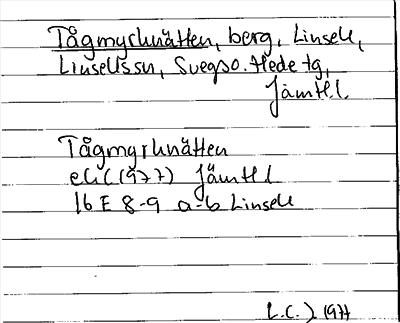 Tågmyrknätten, berg, Linsell,
Linsells sn, Svegs o. Hede tg,
Jämtl.l.
Tågmyrknätten
ekl (1977) Jämtl l
16 E 8-9 a-b Linsell
L.C.J. 1977